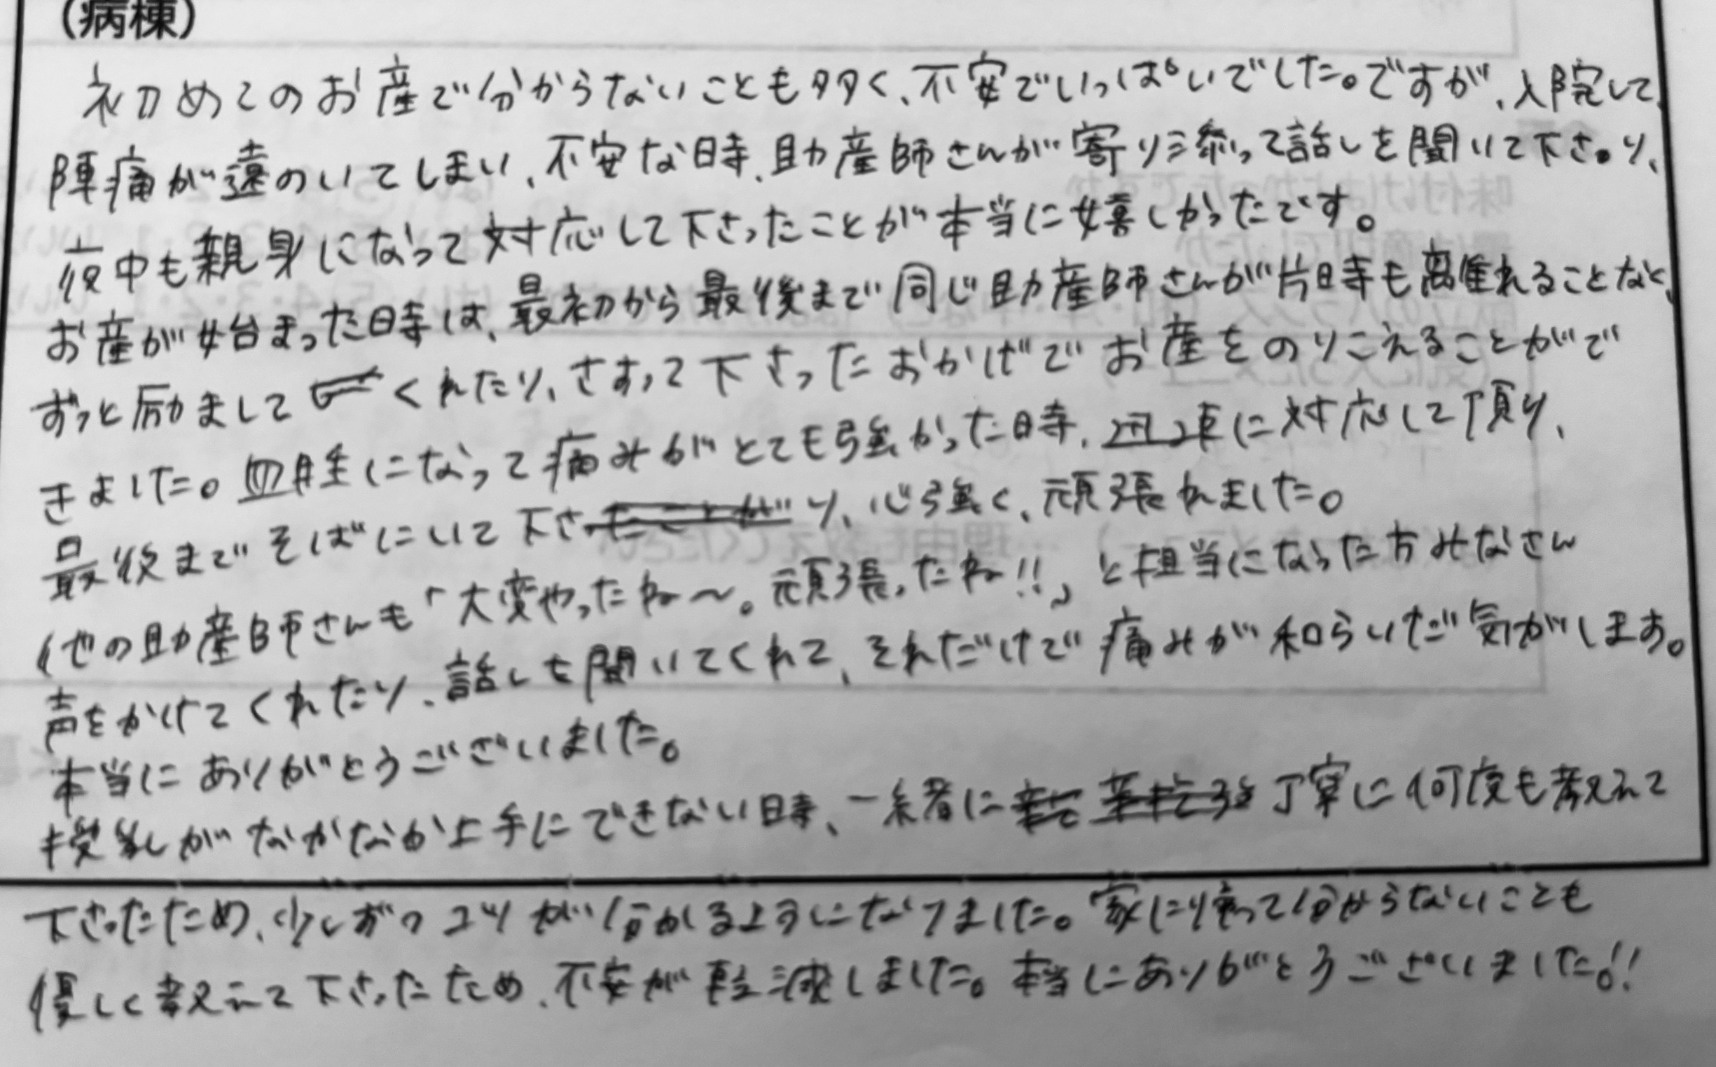 (病棟)
初めてのお産で分からないことも多く、不安でいっぱいでした。ですが、入院して、
陣痛が遠のいてしまい、不安な時、助産師さんが寄り添って話しを聞いて下さり、
夜中も親身になって対応して下さったことが本当に嬉しかったです。
お産が始まった時は、最初から最後まで同じ助産師さんが片時も離れることなく、
ずっと励まして くれたり、さすって下さったおかげでお産をのりこえることがで
きました。血腫になって痛みがとても強かった時、迅速に対応して頂り、
最後までそばにいて下さり、心強く、頑張れました。
他の助産師さんも「大変やったね〜。頑張ったね!!」と担当になった方みなさん
声をかけてくれたり、話しを聞いてくれて、それだけで痛みが和らいだ気がします。
本当にありがとうございました。
授乳がなかなか上手にできない時、一緒に 丁寧に何度も教えて
下さったため、少しずつコツが分かるようになりました。家に帰って分からないことも
優しく教えて下さったため、不安が軽減しました。本当にありがとうございました!!